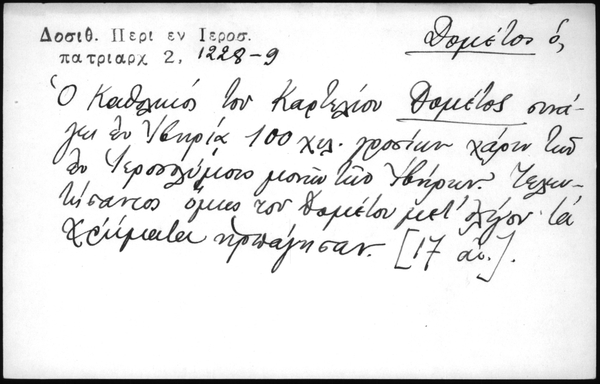 Δοσιθ. Περι εν Ιεροσ.
πατριαρχ 2, 1228-9
Δομέτος ὁ,
Ὁ Καθολικός του Καρτελίου Δομέτος συνά-
γει ἐν Ἰβηρίᾳ 100 χιλ. γροσίων χάριν τῶν
ἐν Ἱεροσολύμοις μονῶν τῶν Ἰβήρων. Τελευ-
τήσαντος ὅμως τοῦ Δομέτου μετ' ὀλίγον τὰ
χρήματα ἡρπάγησαν. [17 αἰ.].